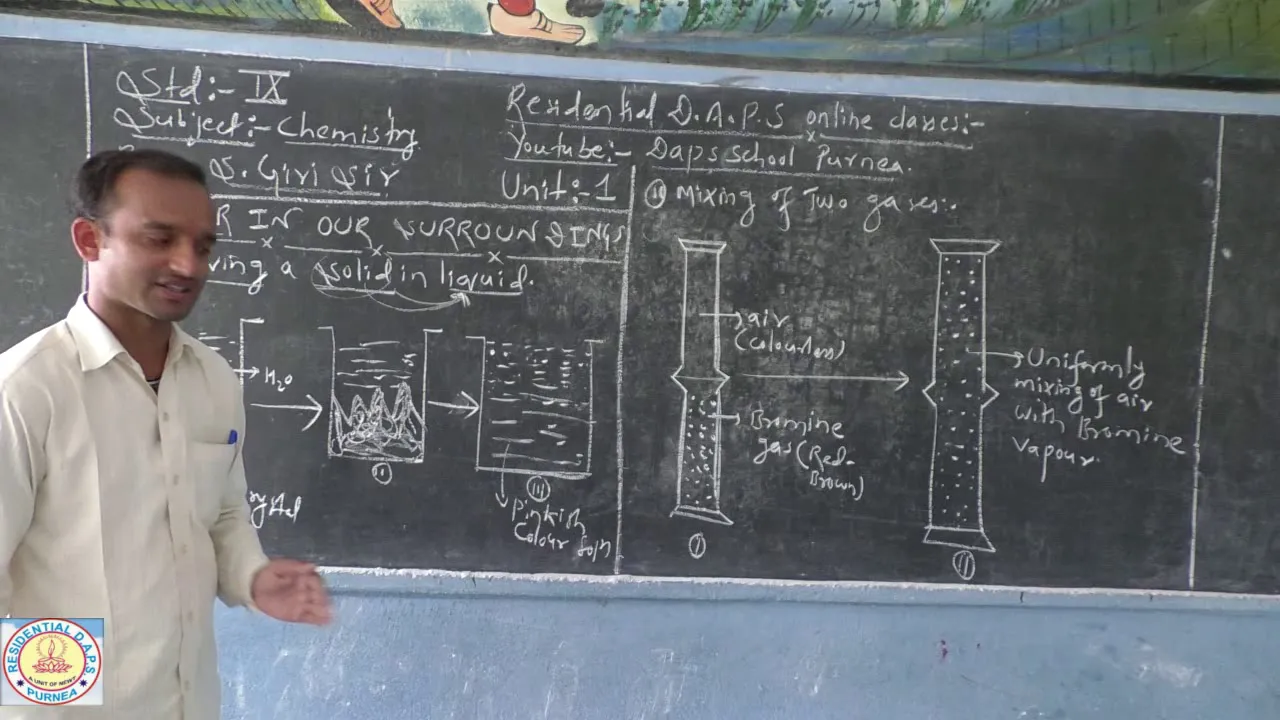 Std:- IX
Subject:- Chemistry
S. Giri Sir
Residential D.A.P.S online classes:-
Youtube:- Daps school Purnea.
Unit:- 1
R IN OUR SURROUNDINGS
ving a solid in liquid.
H₂O
(ii)
(iii)
Pinkish
Colour Soln
Mixing of Two gases:-
air
(colourless)
Bromine
gas (Red-
Brown)
(i)
Uniformly
mixing of air
with Bromine
vapour.
(ii)
RESIDENTIAL D.A.P.S
A UNIT OF MEWT
PURNEA